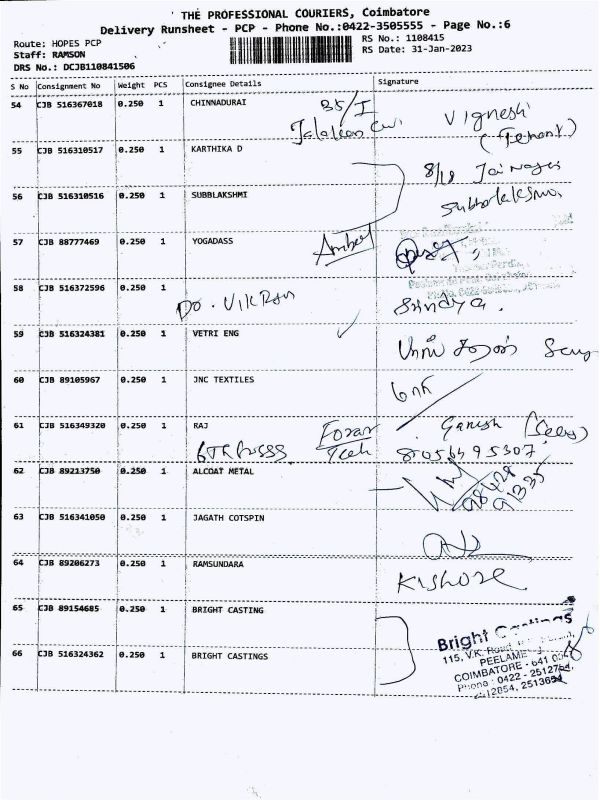 THE PROFESSIONAL COURIERS, Coimbatore
Delivery Runsheet - PCP - Phone No.:0422-3505555 - Page No.:6
Route: HOPES PCP
RS No.: 1108415
Staff: RAMSON
RS Date: 31-Jan-2023
DRS No.: DCJB110841506
S No Consignment No Weight PCS Consignee Details Signature
54 CJB 516367018 0.250 1 CHINNADURAI 35/I Vignesh
(Tenant)
55 CJB 516310517 0.250 1 KARTHIKA D
8/18 Jai Nagar
56 CJB 516310516 0.250 1 SUBBLAKSHMI
57 CJB 88777469 0.250 1 YOGADASS
58 CJB 516372596 0.250 1
DO. VIKRAM Sandya.
59 CJB 516324381 0.250 1 VETRI ENG
60 CJB 89105967 0.250 1 JNC TEXTILES
61 CJB 516349320 0.250 1 RAJ Ganesh
8056495307
62 CJB 89213750 0.250 1 ALCOAT METAL
98428
91335
63 CJB 516341050 0.250 1 JAGATH COTSPIN
64 CJB 89206273 0.250 1 RAMSUNDARA
Kishore
65 CJB 89154685 0.250 1 BRIGHT CASTING
Bright Castings
66 CJB 516324362 0.250 1 BRIGHT CASTINGS
115, V.K. Road
PEELAME
COIMBATORE - 641 004
Phone : 0422 - 2512754
2512854, 2513654